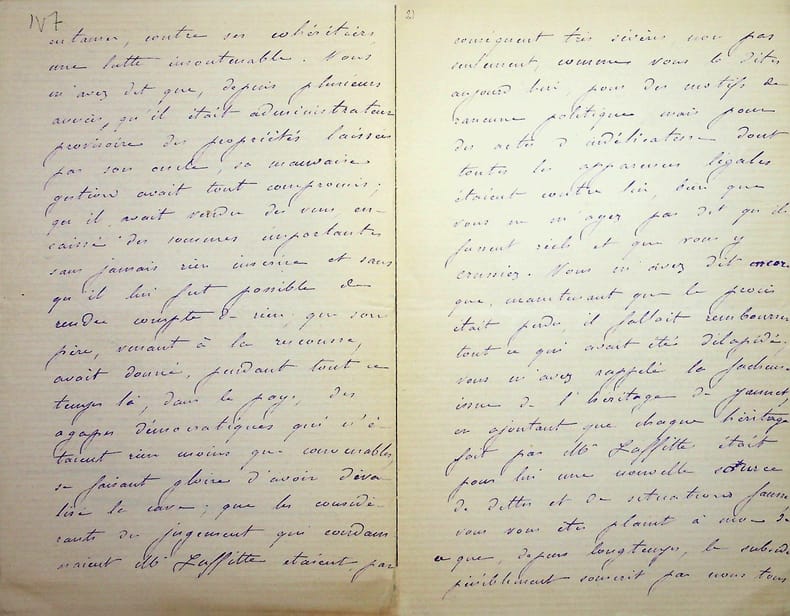 IV7
entamer, contre ses cohéritiers
une lutte insoutenable. Vous
m'avez dit que, depuis plusieurs
années, qu'il était administrateur
provisoire des propriétés laissées
par son oncle, sa mauvaise
gestion avait tout compromis;
qu'il avait vendu des vins, en-
caissé des sommes importantes
sans jamais rien inscrire et sans
qu'il lui fut possible de
rendre compte de rien, que son
père, venant à la rescousse,
avait donné, pendant tout ce
temps là, dans le pays, des
agapes démocratiques qui n'é-
taient rien moins que convenables,
se faisant gloire d'avoir déva-
lisé la cave; que les considé-
rants du jugement qui condam
naient Mr Laffitte étaient par
2)
conséquent très sévères, non pas
seulement, comme vous le dites
aujourd'hui, pour des motifs de
rancune politique mais pour
des actes d'indélicatesse dont
toutes les apparences légales
étaient contre lui, bien que
vous ne m'ayez pas dit qu'ils
fussent réels et que vous y
crussiez. Vous m'avez dit encore
que, maintenant que le procès
était perdu, il fallait rembourser
tout ce qui avait été dilapidé.
Vous m'avez rappelé la fâcheuse
issue de l'héritage de
en ajoutant que chaque héritage
fait par Mr Laffitte était
pour lui une nouvelle source
de dettes et de situations fausses
vous vous êtes plaint à moi de
ce que, depuis longtemps, le subside
péniblement souscrit par nous tous